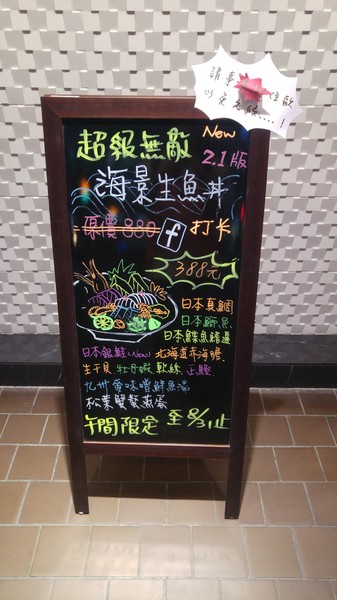 請事 位歐
以免
超級無敵 New
2.1版
海景生魚丼
原價 880 f 打卡
388元
日本真鯛
日本鰤魚、
日本鰈魚鰭邊
日本銀鮭New 北海道赤海膽、
生干貝 牡丹蝦 軟絲 正鰹
九州黃味噌鮮魚湯
松葉蟹蟹蒸蛋
午間限定 至8/31止